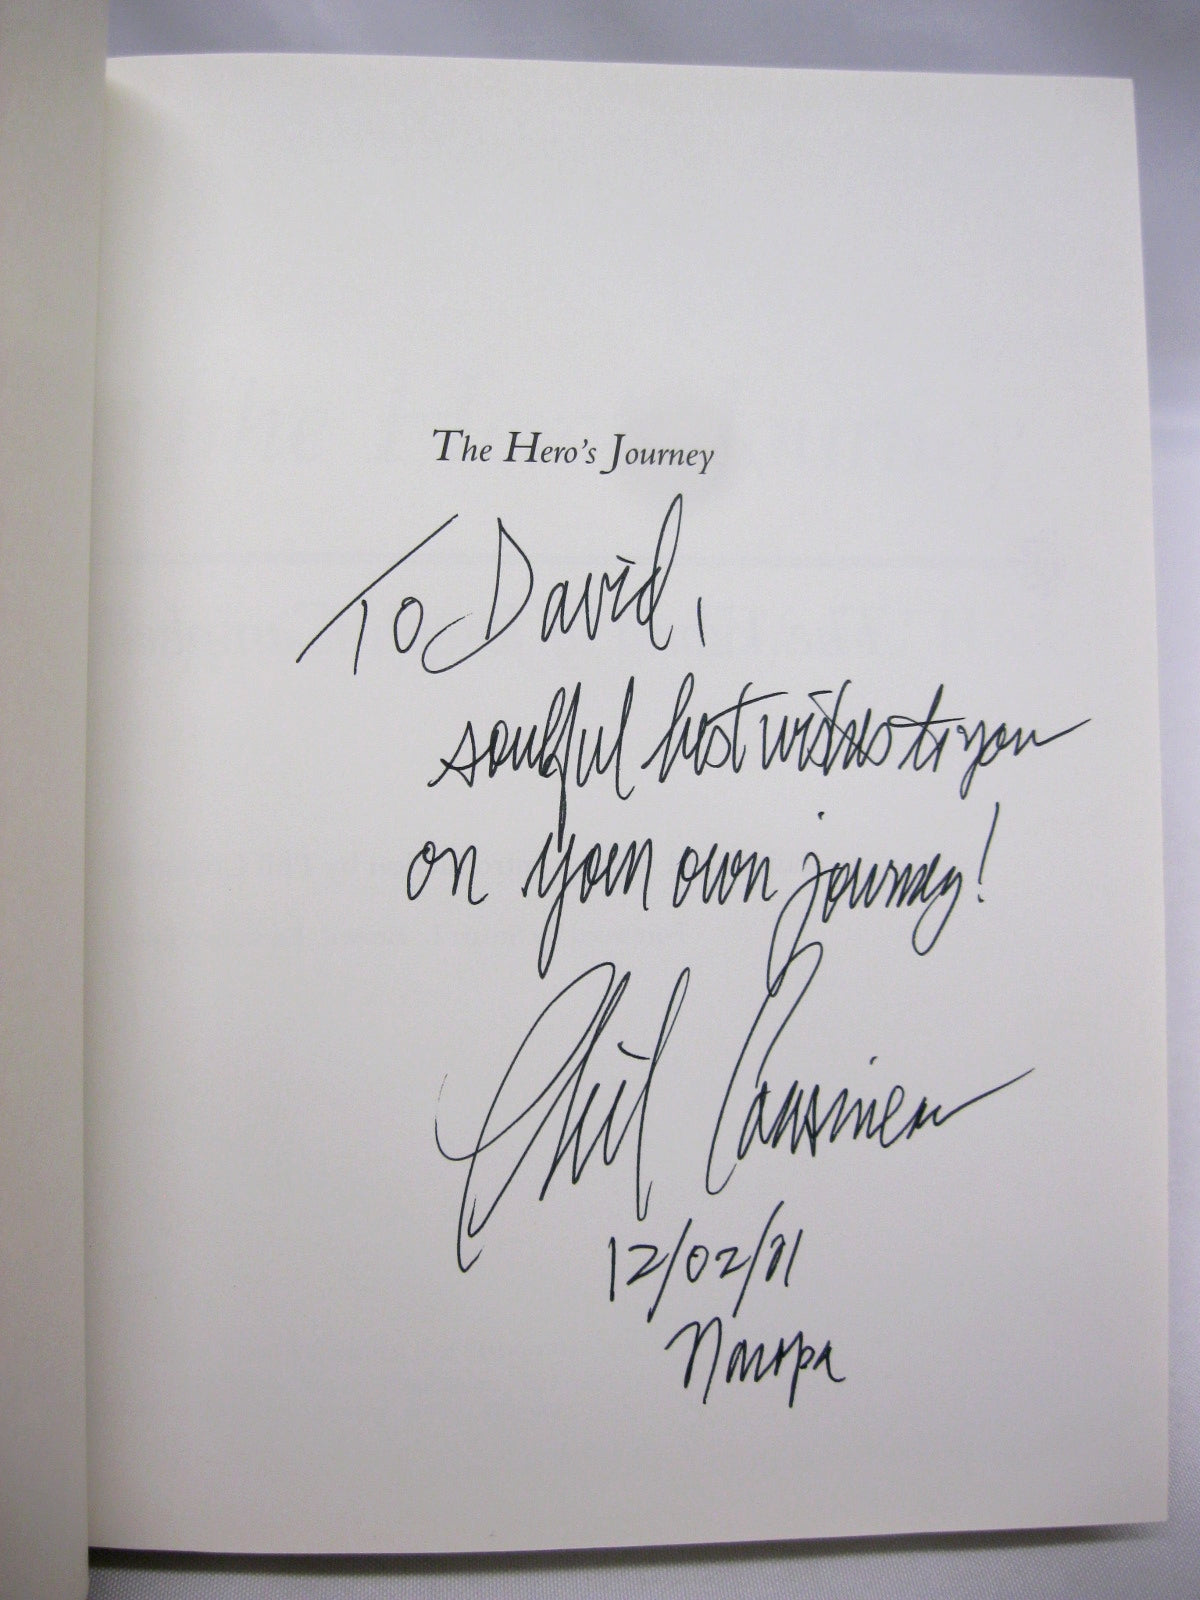 The Hero's Journey
To David,
soulful best wishes to you
on your own journey!
Phil Cousineau
12/02/01
Naropa